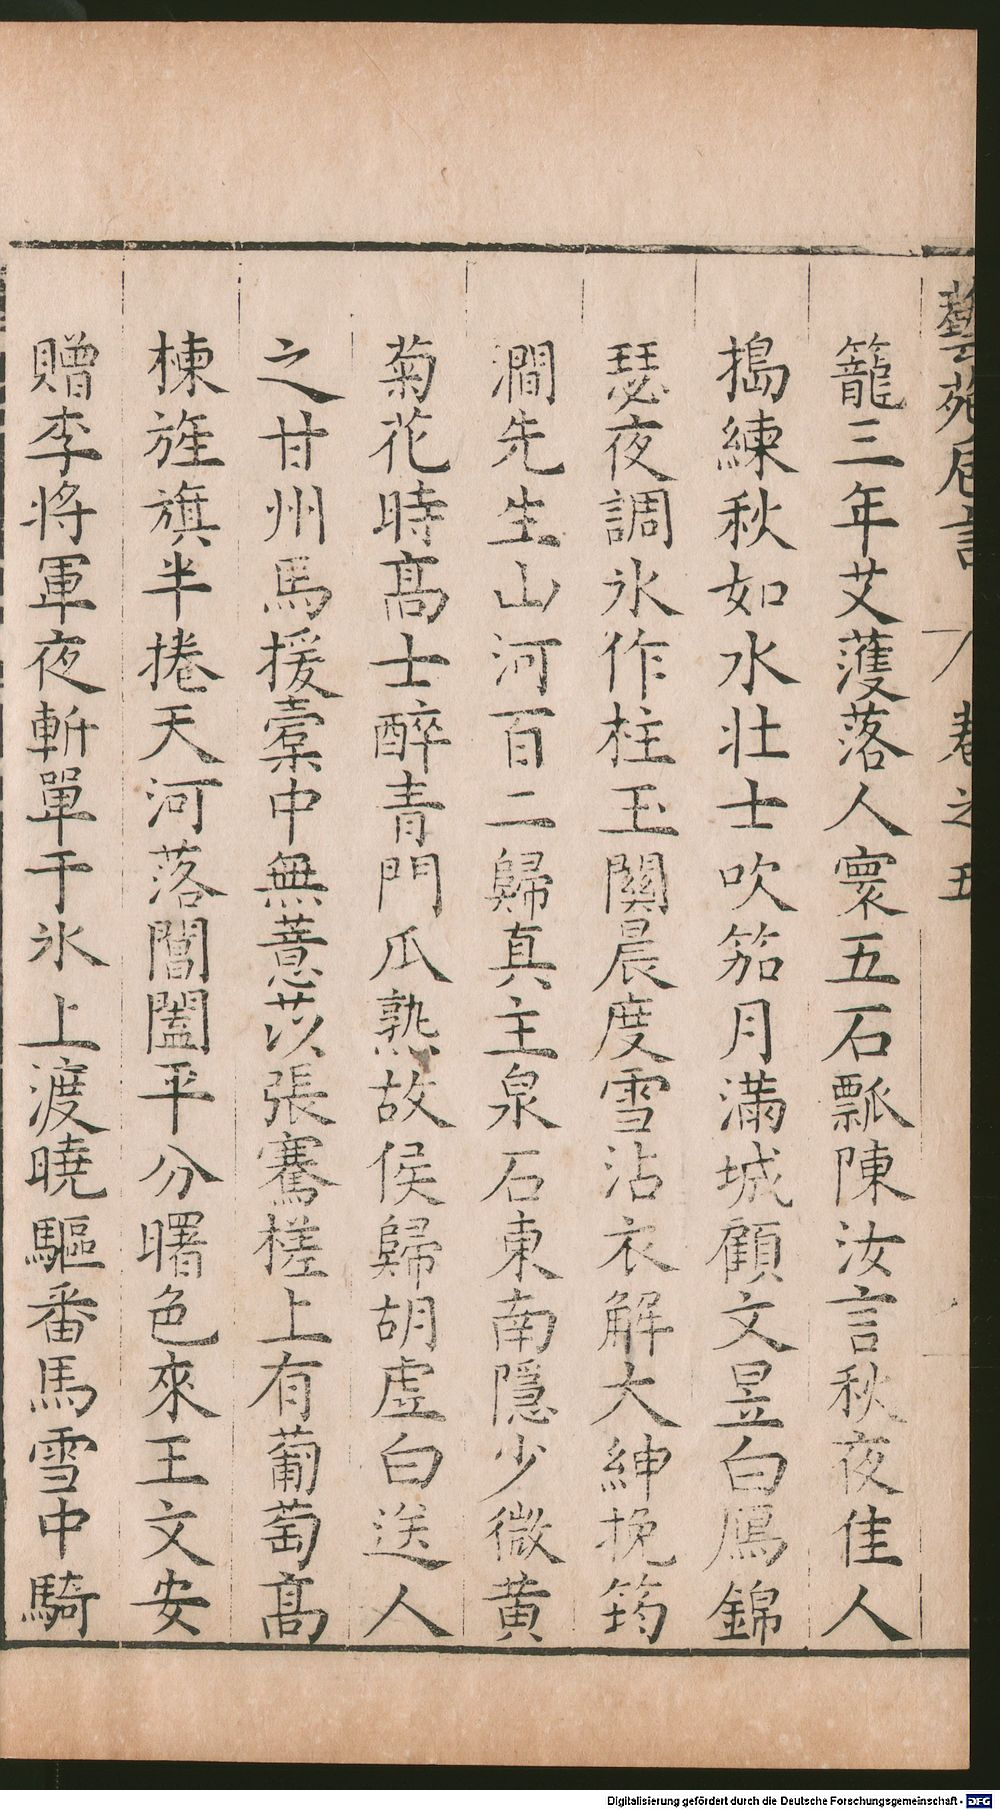 藝苑卮言 卷之五
籠三年艾蒦落人寰五石瓢陳汝言秋夜佳人
搗練秋如水壯士吹笳月滿城顧文昱白鴈錦
瑟夜調氷作柱玉關晨度雪沾衣解大紳挽筠
澗先生山河百二歸真主泉石東南隱少微黃
菊花時髙士醉青門瓜熟故侯歸胡虚白送人
之甘州馬援槖中無薏苡張騫槎上有葡萄髙
棟旌旗半捲天河落閶闔平分曙色來王文安
贈李將軍夜斬單于氷上渡曉驅番馬雪中騎
Digitalisierung gefördert durch die Deutsche Forschungsgemeinschaft - DFG